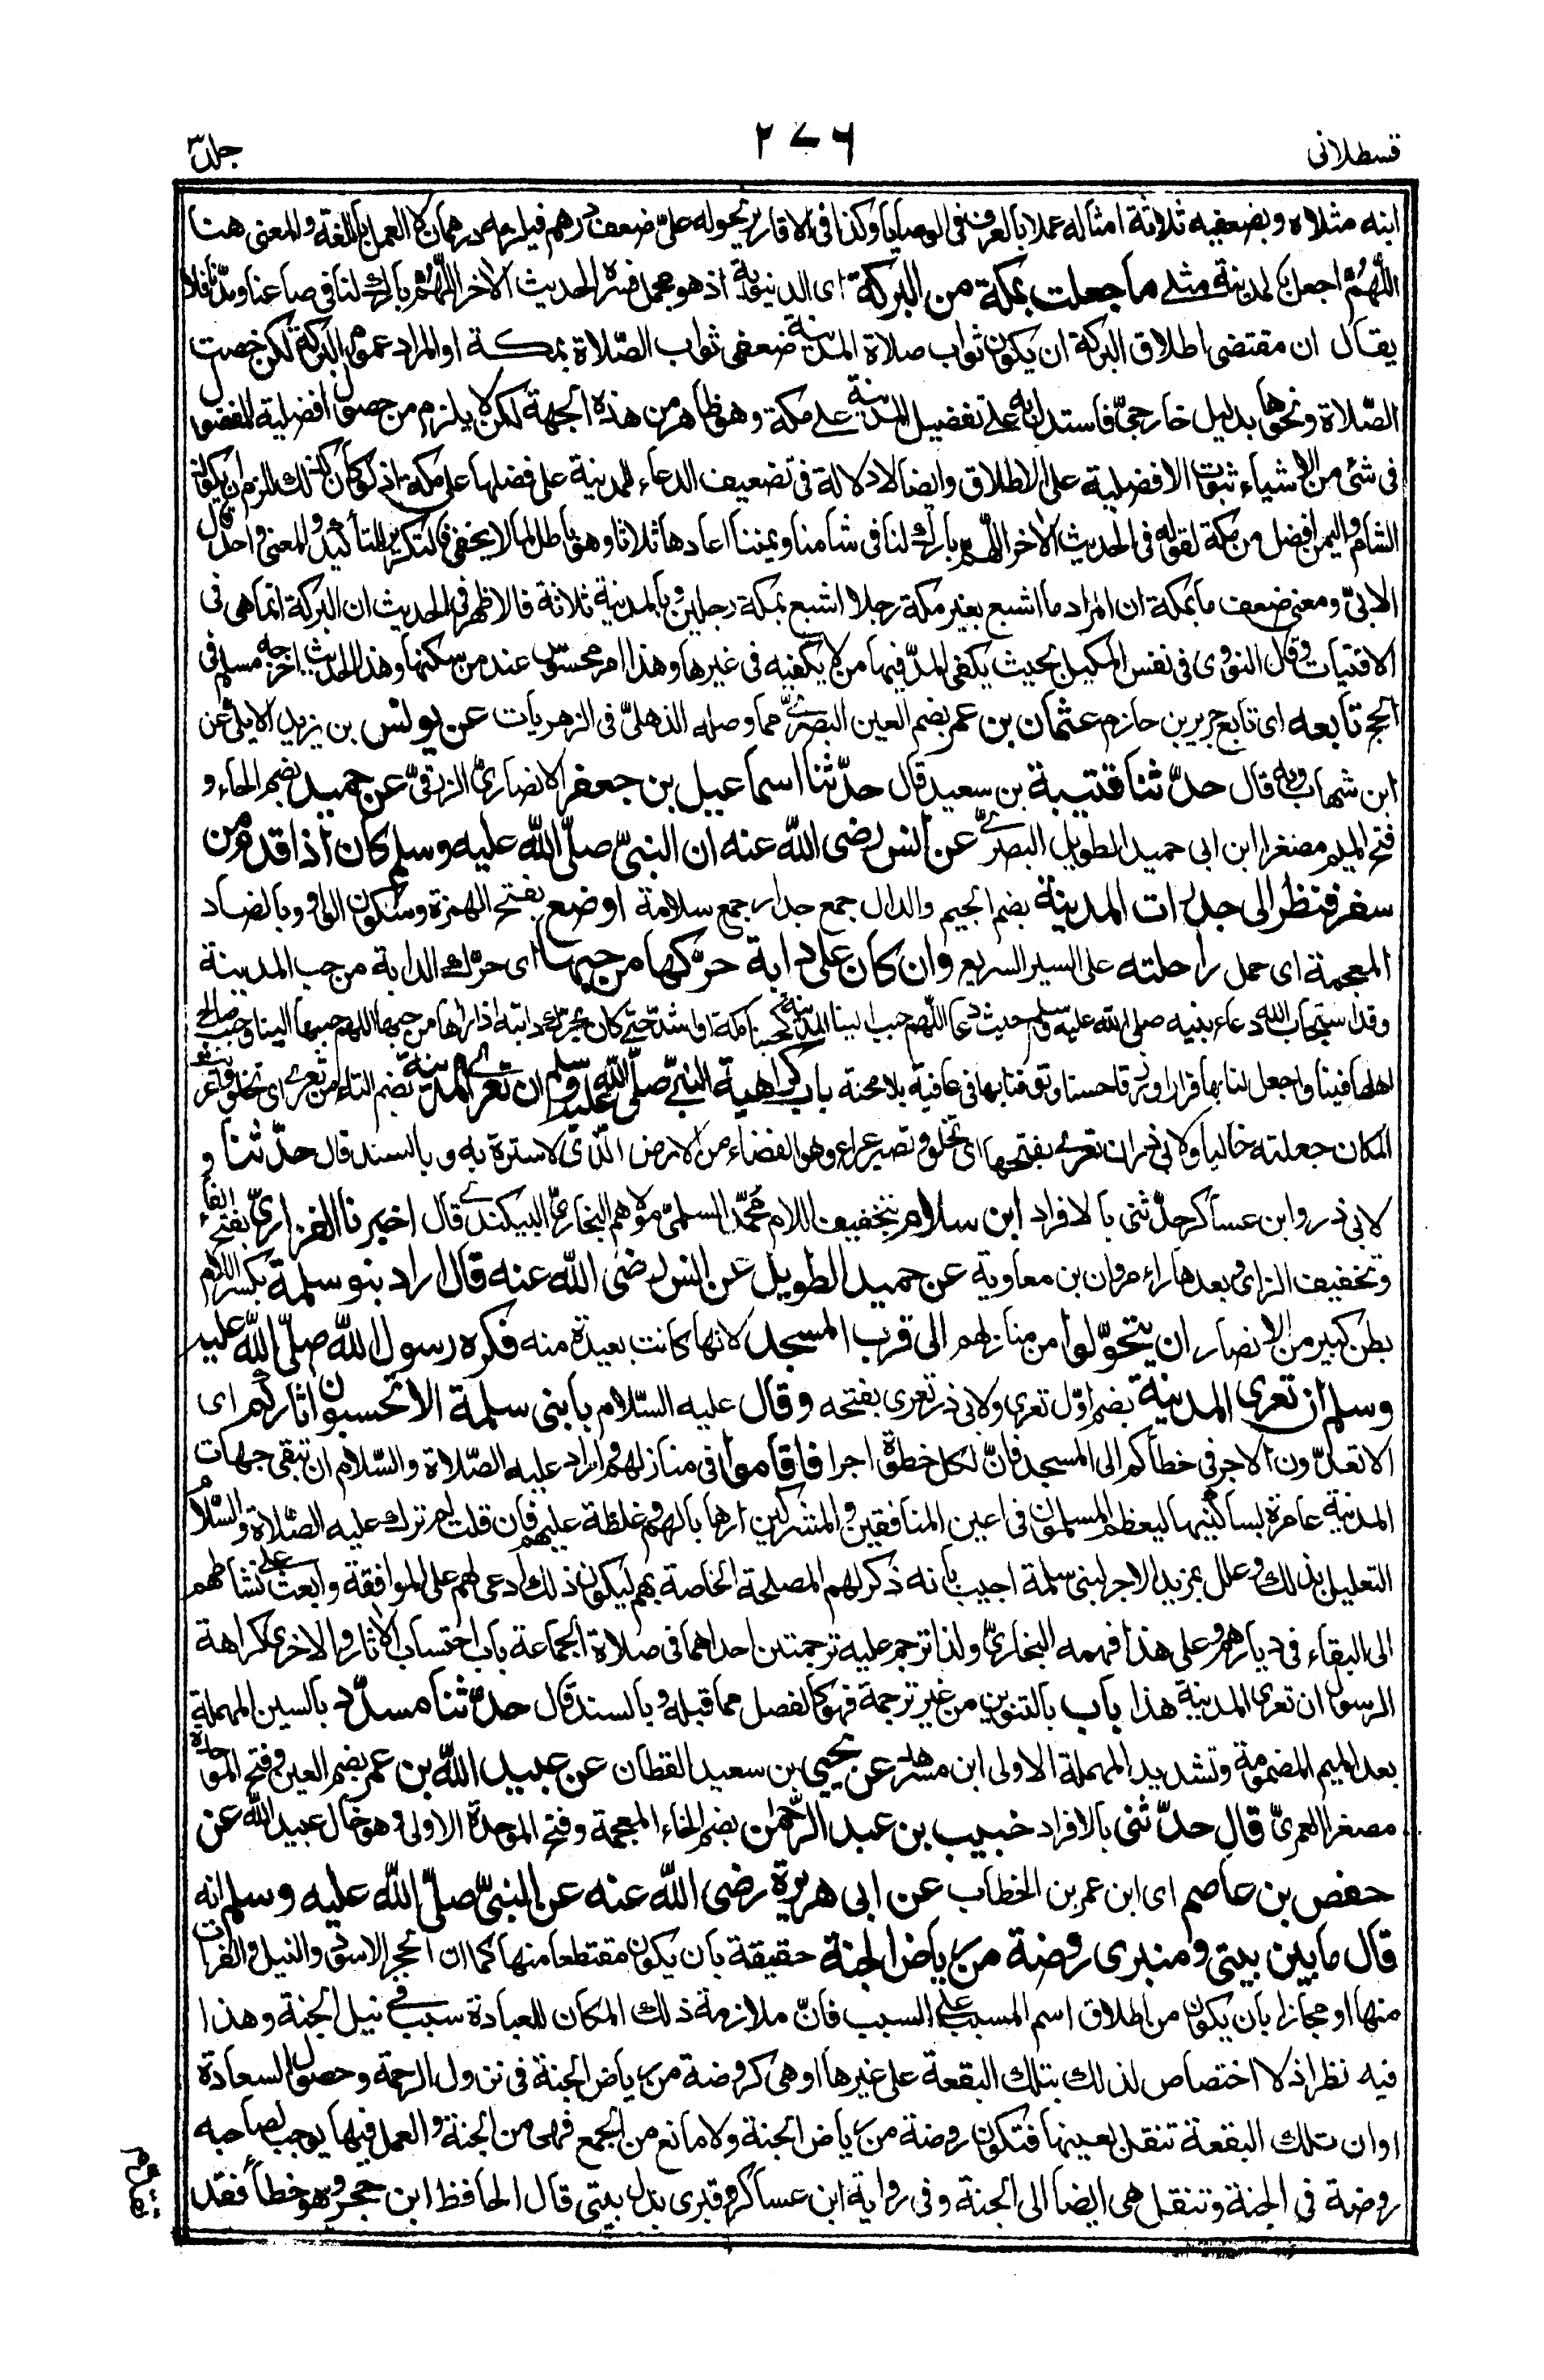 قسطلانی
۲۷۶
جلد ۳
ابنه مثلاه وبضعفيه ثلاثة امثاله عملا بالعرف فى الوصايا وكذا فى الاقارير نحو له على ضعف درهم فيلزمه درهمان لا العمل باللغة والمعنى هنا
اللّٰهُمَّ اجعل بالمدينة مثلى ما جعلت بمكة من البركة اى الدنيوية اذ هو مجمل فسره الحديث الاخر اللّٰهم بارك لنا فى صاعنا ومدنا فلا
يقال ان مقتضى اطلاق البركة ان يكون ثواب صلاة المدينة ضعفى ثواب الصّلاة بمكة او المراد عموم البركة لكن خصت
الصّلاة ونحوها بدليل خارجىّ فاستدل به على تفضيل المدينة على مكة وهو ظاهر من هذه الجهة لكن لا يلزم من حصول افضلية المفضول
فى شئ من الاشياء ثبوت الافضلية على الاطلاق وايضا لا دلالة فى تضعيف الدعاء للمدينة على فضلها على مكة اذ لو كان كذلك للزم ان يكون
الشام واليمن افضل من مكة لقوله فى الحديث الاخر اللّٰهم بارك لنا فى شامنا ويمننا اعادها ثلاثا وهو باطل لما لا يخفى فالتكرير للتأكيد والمعنى واحد قال
الابىّ ومعنى ضعف ما بمكة ان المراد ما اشبع بغير مكة رجلا اشبع بمكة رجلين وبالمدينة ثلاثة فالاظهر فى الحديث ان البركة انما هى فى
الاقتيات وقال النووى فى نفس المكيل بحيث يكفى المدّ فيها من لا يكفيه فى غيرها وهذا امر محسوس عند من سكنها وهذا الحديث اخرجه مسلم فى
الحج تابعه اى تابع جرير بن حازم عثمان بن عمر بضم العين البصرىّ مما وصله الذهلىّ فى الزهريات عن يونس بن يزيد الايلىّ عن
ابن شهاب وبه قال حدّثنا قتيبة بن سعيد قال حدّثنا اسماعيل بن جعفر الانصارىّ الزرقىّ عن حميد بضم الحاء و
فتح الميم مصغرا ابن ابى حميد الطويل البصرىّ عن انس رضى اللّٰه عنه ان النبىّ صلّى اللّٰه عليه وسلم كان اذا قدم من
سفر فنظر الى جدرات المدينة بضم الجيم والدال جمع جدار جمع سلامة اوضع بفتح الهمزة وسكون الواو وبالضاد
المعجمة اى حمل راحلته على السير السريع وان كان على دابة حرّكها من حبها اى حرّك الدابة من حب المدينة
وقد استجاب اللّٰه دعاء نبيه صلى اللّٰه عليه وسلم حيث دعا اللّٰهم حبب الينا المدينة كحبنا مكة او اشد حتى كان يحرك دابته اذا راها من حبها اللهم حببها الينا وحبب صالحى
اهلها فينا واجعل لنا بها قرارا ورزقا حسنا وتوفنا بها فى عافية بلا محنة باب كراهية النبىّ صلّى اللّٰه عليه وسلم ان تعرى المدينة بضم التاء من تعرى اى تخلو واعريت
المكان جعلته خاليا ولابى ذر ان تعرى بفتحها اى تخلو وتصير عراء وهو الفضاء من الارض الّذى لا سترة به وبالسند قال حدّثنا و
لابى ذر وابن عساكر حدّثنى بالافراد ابن سلام بتخفيف اللام محمّد السلمىّ مولاهم البخارىّ البيكندى قال اخبرنا الفزارىّ بفتح الفاء
وتخفيف الزاى وبعدها راء مروان بن معاوية عن حميد الطويل عن انس رضى اللّٰه عنه قال اراد بنو سلمة بكسر اللام
بطن كبير من الانصار ان يتحوّلوا من منازلهم الى قرب المسجد لانها كانت بعيدة منه فكره رسول اللّٰه صلّى اللّٰه عليه
وسلم ان تعرى المدينة بضم اوّل تعرى ولابى ذر تعرى بفتحه وقال عليه السّلام يا بنى سلمة الا تحسبون اثاركم اى
الا تعدّون الاجر فى خطاكم الى المسجد فانّ لكل خطوة اجرا فاقاموا فى منازلهم واراد عليه الصّلاة والسّلام ان تبقى جهات
المدينة عامرة بساكنيها ليعظم المسلمون فى اعين المنافقين والمشركين ارهابا لهم وغلظة عليهم فان قلت لم ترك عليه الصّلاة والسّلام
التعليل بذلك وعلل بمزيد الاجر لبنى سلمة اجيب بانه ذكر لهم المصلحة الخاصة بهم ليكون ذلك ادعى لهم على الموافقة وابعث على نشاطهم
الى البقاء فى ديارهم وعلى هذا فهمه البخارىّ ولذا ترجم عليه ترجمتين احداهما فى صلاة الجماعة باب احتساب الاثار والاخرى كراهة
الرسول ان تعرى المدينة هذا باب بالتنوين من غير ترجمة فهو كالفصل مما قبله وبالسند قال حدّثنا مسدّد بالسين المهملة
بعد الميم المضمومة وتشديد المهملة الاولى ابن مسرهد عن يحيى بن سعيد القطان عن عبيد اللّٰه بن عمر بضم العين وفتح الموحدة
مصغرا العمرىّ قال حدّثنى بالافراد خبيب بن عبد الرّحمٰن بضم الخاء المعجمة وفتح الموحدة الاولى وهو خال عبيد اللّٰه عن
حفص بن عاصم اى ابن عمر بن الخطاب عن ابى هريرة رضى اللّٰه عنه عن النبىّ صلّى اللّٰه عليه وسلم انه
قال ما بين بيتى ومنبرى روضة من رياض الجنة حقيقة بان يكون مقتطعا منها كما ان الحجر الاسود والنيل والفرات
منها او مجازا بان يكون من اطلاق اسم المسبب على السبب فانّ ملازمة ذلك المكان للعبادة سبب فى نيل الجنة وهذا
فيه نظر اذ لا اختصاص لذلك بتلك البقعة على غيرها او هى كروضة من رياض الجنة فى نزول الرحمة وحصول السعادة
او ان تلك البقعة تنقل بعينها فتكون روضة من رياض الجنة ولا مانع من الجمع فهى من الجنة والعمل فيها يوجب لصاحبه
روضة فى الجنة وتنقل هى ايضا الى الجنة وفى رواية ابن عساكر وقبرى بدل بيتى قال الحافظ ابن حجر وهو خطأ فقد